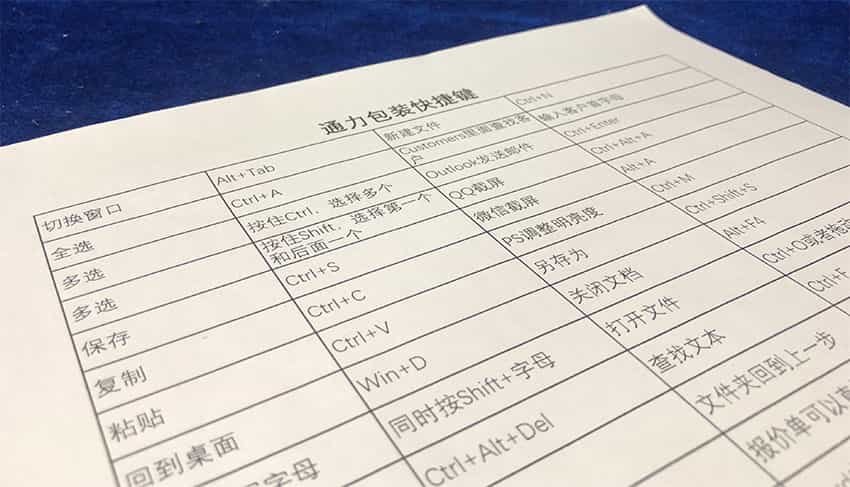 通力包装快捷键
切换窗口 Alt+Tab 新建文件 Ctrl+N
全选 Ctrl+A Customers里面查找客户 输入客户首字母
多选 按住Ctrl，选择多个 Outlook发送邮件 Ctrl+Enter
多选 按住Shift，选择第一个和后面一个 QQ截屏 Ctrl+Alt+A
保存 Ctrl+S 微信截屏 Alt+A
复制 Ctrl+C PS调整明亮度 Ctrl+M
粘贴 Ctrl+V 另存为 Ctrl+Shift+S
回到桌面 Win+D 关闭文档 Alt+F4
字母 同时按Shift+字母 打开文件 Ctrl+O或者拖动
Ctrl+Alt+Del 查找文本 Ctrl+F
文件夹回到上一步
报价单可以